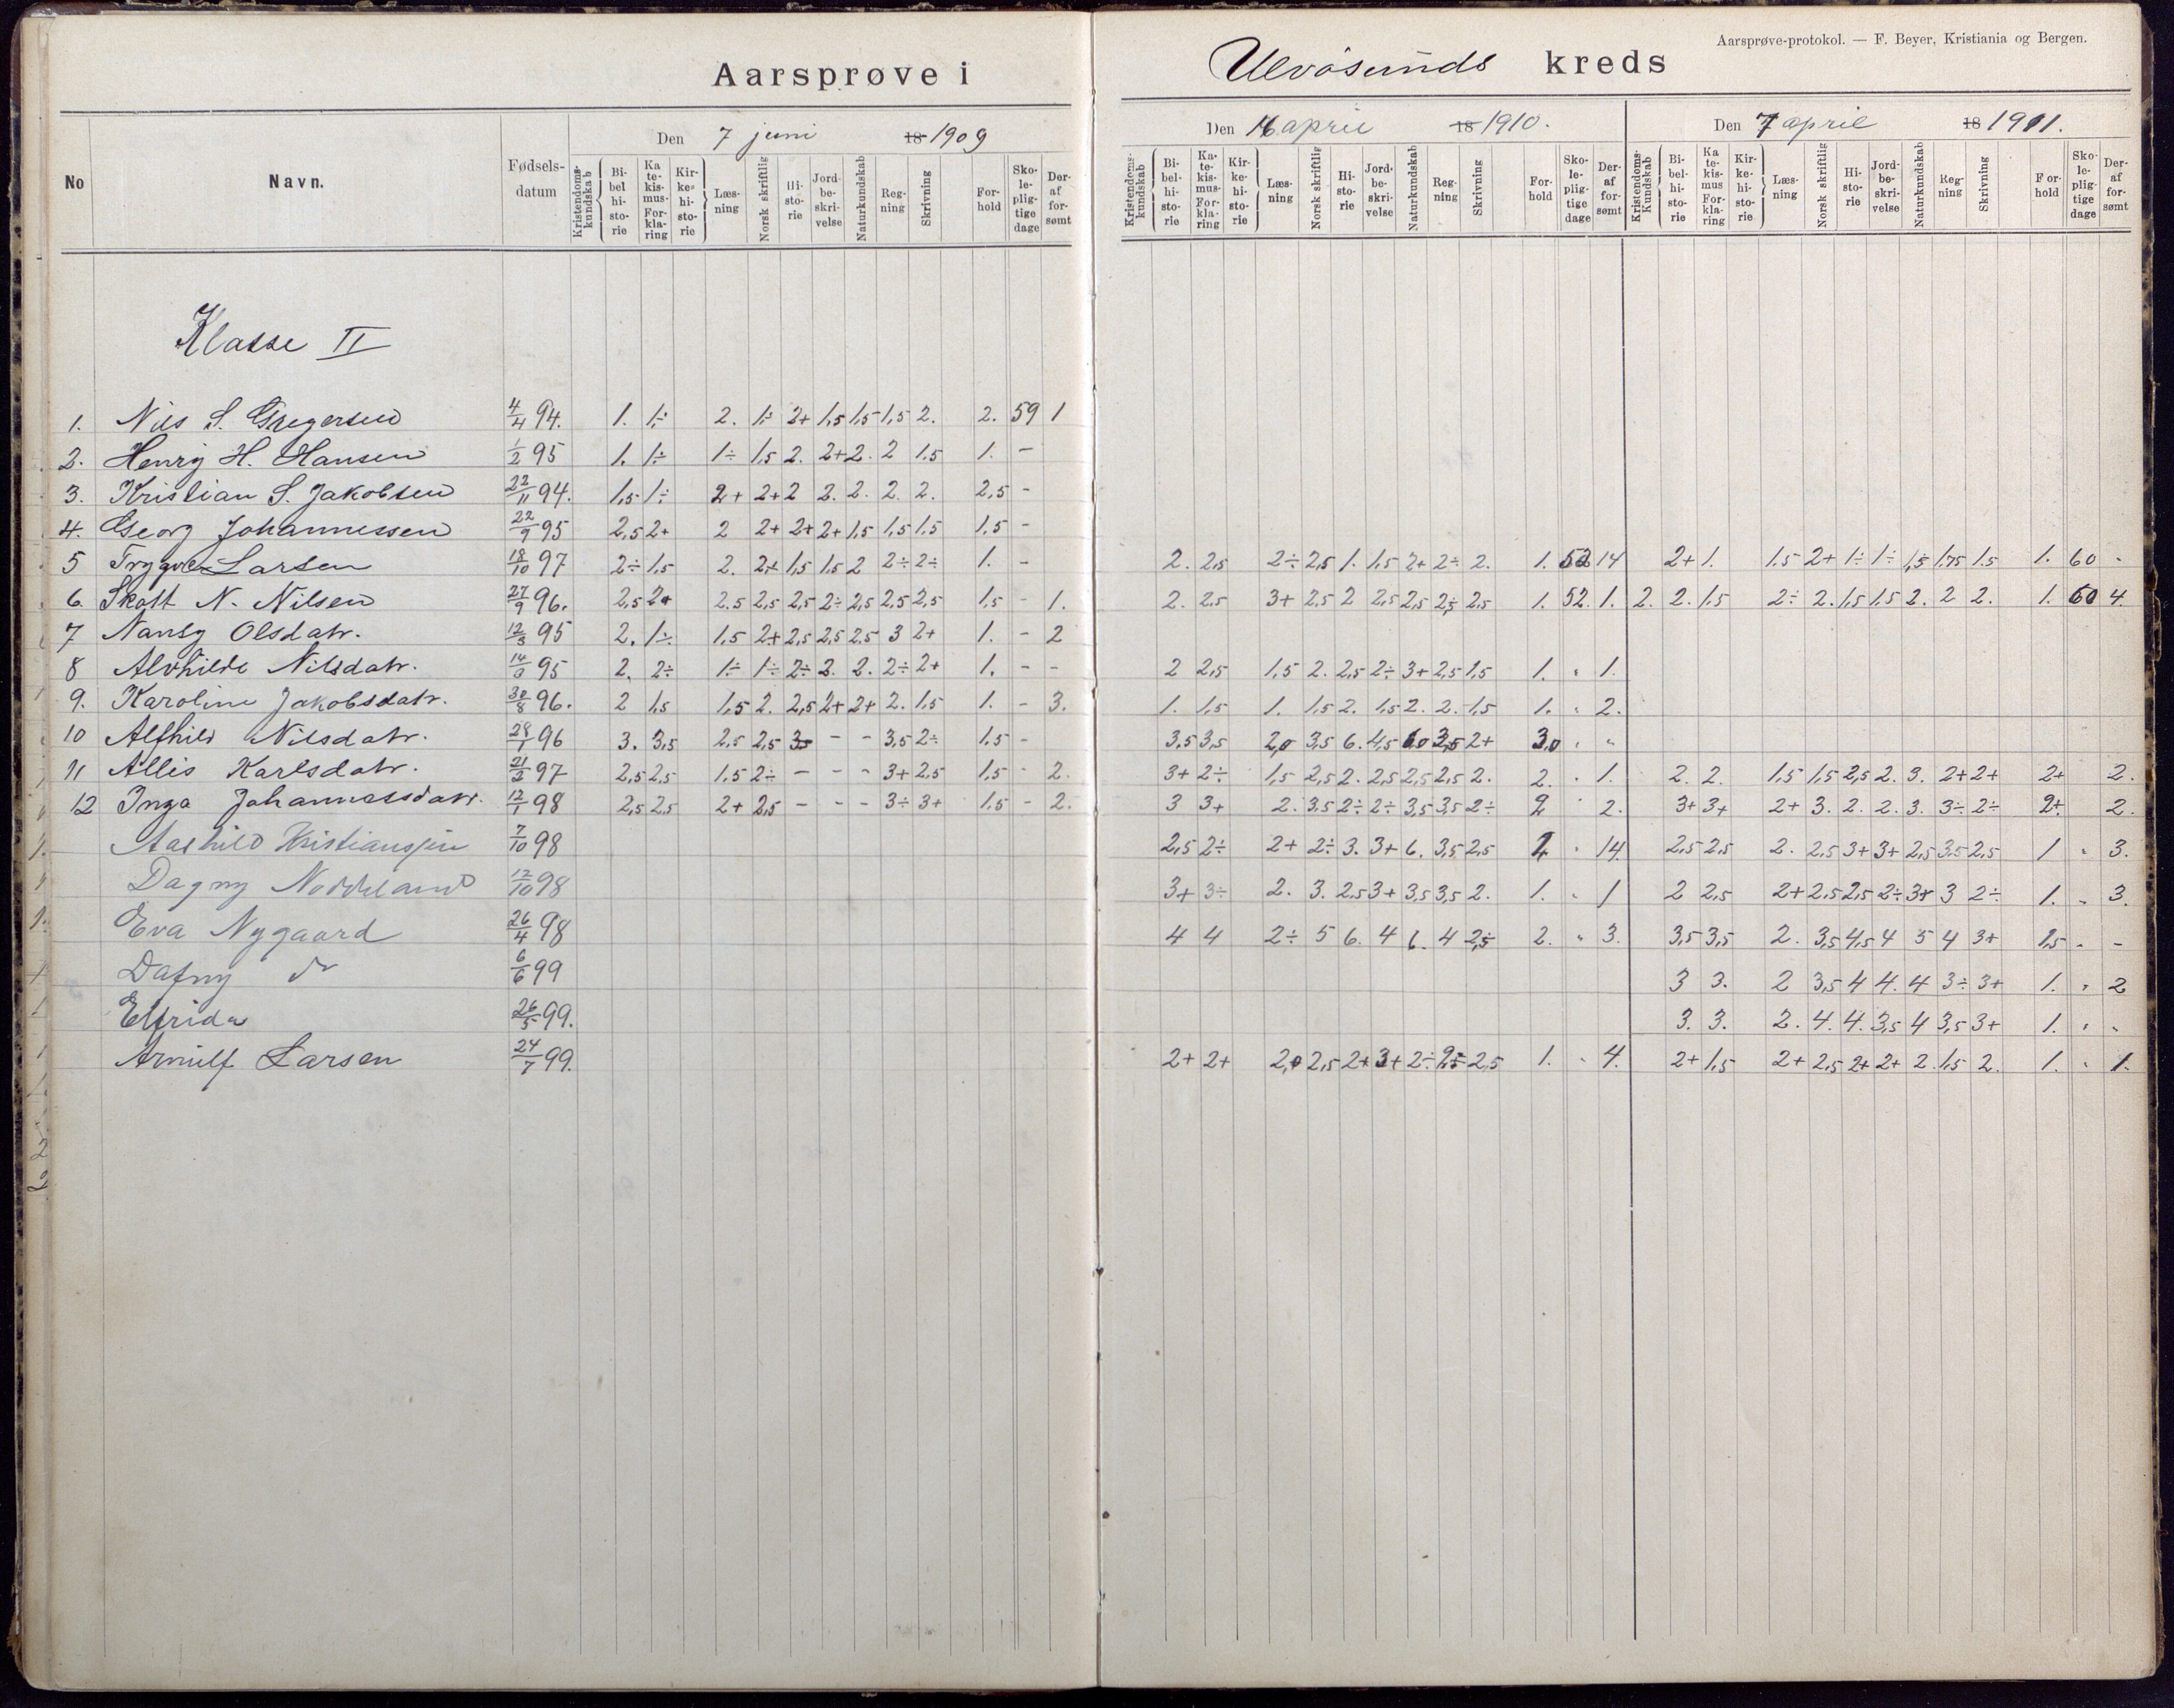 Aarsprøve-protokol. — F. Beyer, Kristiania og Bergen.
Aarsprøve i Ulvøsunds kreds
No Navn. Fødsels-datum Den 7 juni 18 1909 Den 16 april 18 1910. Den 7 april 18 1911.
Kristendoms-kundskab Bi-bel-hi-sto-rie Ka-te-kis-mus-For-kla-ring Kir-ke-hi-sto-rie Læs-ning Norsk skriftlig Hi-sto-rie Jord-be-skri-velse Naturkundskab Reg-ning Skrivning For-hold Sko-le-plig-tige dage Der-af for-sømt
Kristendoms-kundskab Bi-bel-hi-sto-rie Ka-te-kis-mus-For-kla-ring Kir-ke-hi-sto-rie Læs-ning Norsk skriftlig Hi-sto-rie Jord-be-skri-velse Naturkundskab Reg-ning Skrivning For-hold Sko-le-plig-tige dage Der-af for-sømt
Kristendoms-Kundskab Bi-bel-hi-sto-rie Ka-te-kis-mus For-kla-ring Kir-ke-hi-sto-rie Læs-ning Norsk skriftlig Hi-sto-rie Jord-be-skri-velse Naturkundskab Reg-ning Skrivning For-hold Sko-le-plig-tige dage Der-af for-sømt
Klasse II
1. Nils S. Gregersen 4/4 94. 1. 1÷ 2. 1÷ 2+ 1,5 1,5 1,5 2. 2. 59 1
2. Henry H. Hansen 1/2 95 1. 1÷ 1÷ 1,5 2. 2+ 2. 2 1.5 1. -
3. Kristian S. Jakobsen 22/11 94. 1,5 1÷ 2+ 2+ 2 2. 2. 2. 2. 2,5 -
4. Georg Johannessen 22/9 95 2,5 2+ 2 2+ 2+ 2+ 1,5 1,5 1,5 1,5 -
5 Trygve Larsen 18/10 97 2÷ 1,5 2. 2+ 1,5 1,5 2 2÷ 2÷ 1. - 2. 2,5 2÷ 2,5 1. 1,5 2+ 2÷ 2. 1. 52 14 2+ 1. 1.5 2+ 1÷ 1÷ 1,5 1.75 1.5 1. 60 -
6. Skott N. Nilsen 27/9 96. 2,5 2+ 2.5 2,5 2,5 2÷ 2,5 2,5 2,5 1,5 - 1. 2. 2.5 3+ 2,5 2 2,5 2,5 2,5 2,5 1. 52. 1. 2. 2. 1.5 2÷ 2. 1.5 1.5 2. 2 2. 1. 60 4.
7 Nansy Olsdatr. 12/3 95 2. 1÷ 1.5 2+ 2,5 2,5 2.5 3 2+ 1. - 2
8 Alvhilde Nilsdatr. 95 2. 2÷ 1÷ 1÷ 2÷ 2. 2. 2÷ 2+ 1. - - 2 2,5 1,5 2. 2,5 2÷ 3+ 2,5 1,5 1. " 1.
9. Karoline Jakobsdatr. 30/8 96. 2 1,5 1,5 2. 2,5 2+ 2+ 2. 1.5 1. - 3. 1. 1,5 1. 1,5 2. 1,5 2. 2. 1,5 1. " 2.
10 Alfhild Nilsdatr. 28/1 96 3. 3,5 2,5 2,5 3,5 - - 3,5 2÷ 1.5 - 3,5 3,5 2,0 3,5 6. 4,5 6.0 3,5 2+ 3,0 " "
11 Allis Karlsdatr. 21/2 97 2,5 2,5 1.5 2÷ - - - 3+ 2.5 1,5 - 2. 3+ 2÷ 1,5 2,5 2. 2,5 2,5 2,5 2. 2. " 1. 2. 2. 1.5 1.5 2,5 2. 3. 2+ 2+ 2+ 2.
12 Inga Johannesdatr. 12/1 98 2,5 2.5 2+ 2,5 - - - 3÷ 3+ 1.5 - 2. 3 3+ 2. 3.5 2÷ 2÷ 3,5 3,5 2÷ 2 " 2. 3+ 3+ 2+ 3. 2. 2. 3. 3÷ 2÷ 2+ 2.
Aashild Kristiansen 7/10 98 2,5 2÷ 2+ 2÷ 3. 3+ 6. 3,5 2,5 1 " 14. 2.5 2,5 2. 2,5 3+ 3+ 2,5 3,5 2,5 1 " 3.
Dagny Noddeland 12/10 98 3+ 3÷ 2. 3. 2,5 3+ 3,5 3,5 2. 1. " 1 2 2,5 2+ 2,5 2,5 2÷ 3+ 3 2÷ 1. " 3.
Eva Nygaard 26/4 98 4 4 2÷ 5 6. 4 6. 4 2,5 2. " 3. 3,5 3,5 2. 3,5 4,5 4 5 4 3+ 1,5 - -
Dafny do 6/6 99 3 3. 2 3,5 4 4. 4 3÷ 3+ 1. " 2
Elfrida 26/5 99. 3. 3. 2. 4. 4. 3,5 4 3,5 3+ 1. " "
Arnulf Larsen 24/7 99. 2+ 2+ 2,0 2,5 2+ 3+ 2÷ 2,5 2,5 1. " 4. 2+ 1,5 2+ 2,5 2+ 2+ 2. 1.5 2. 1. " 1.